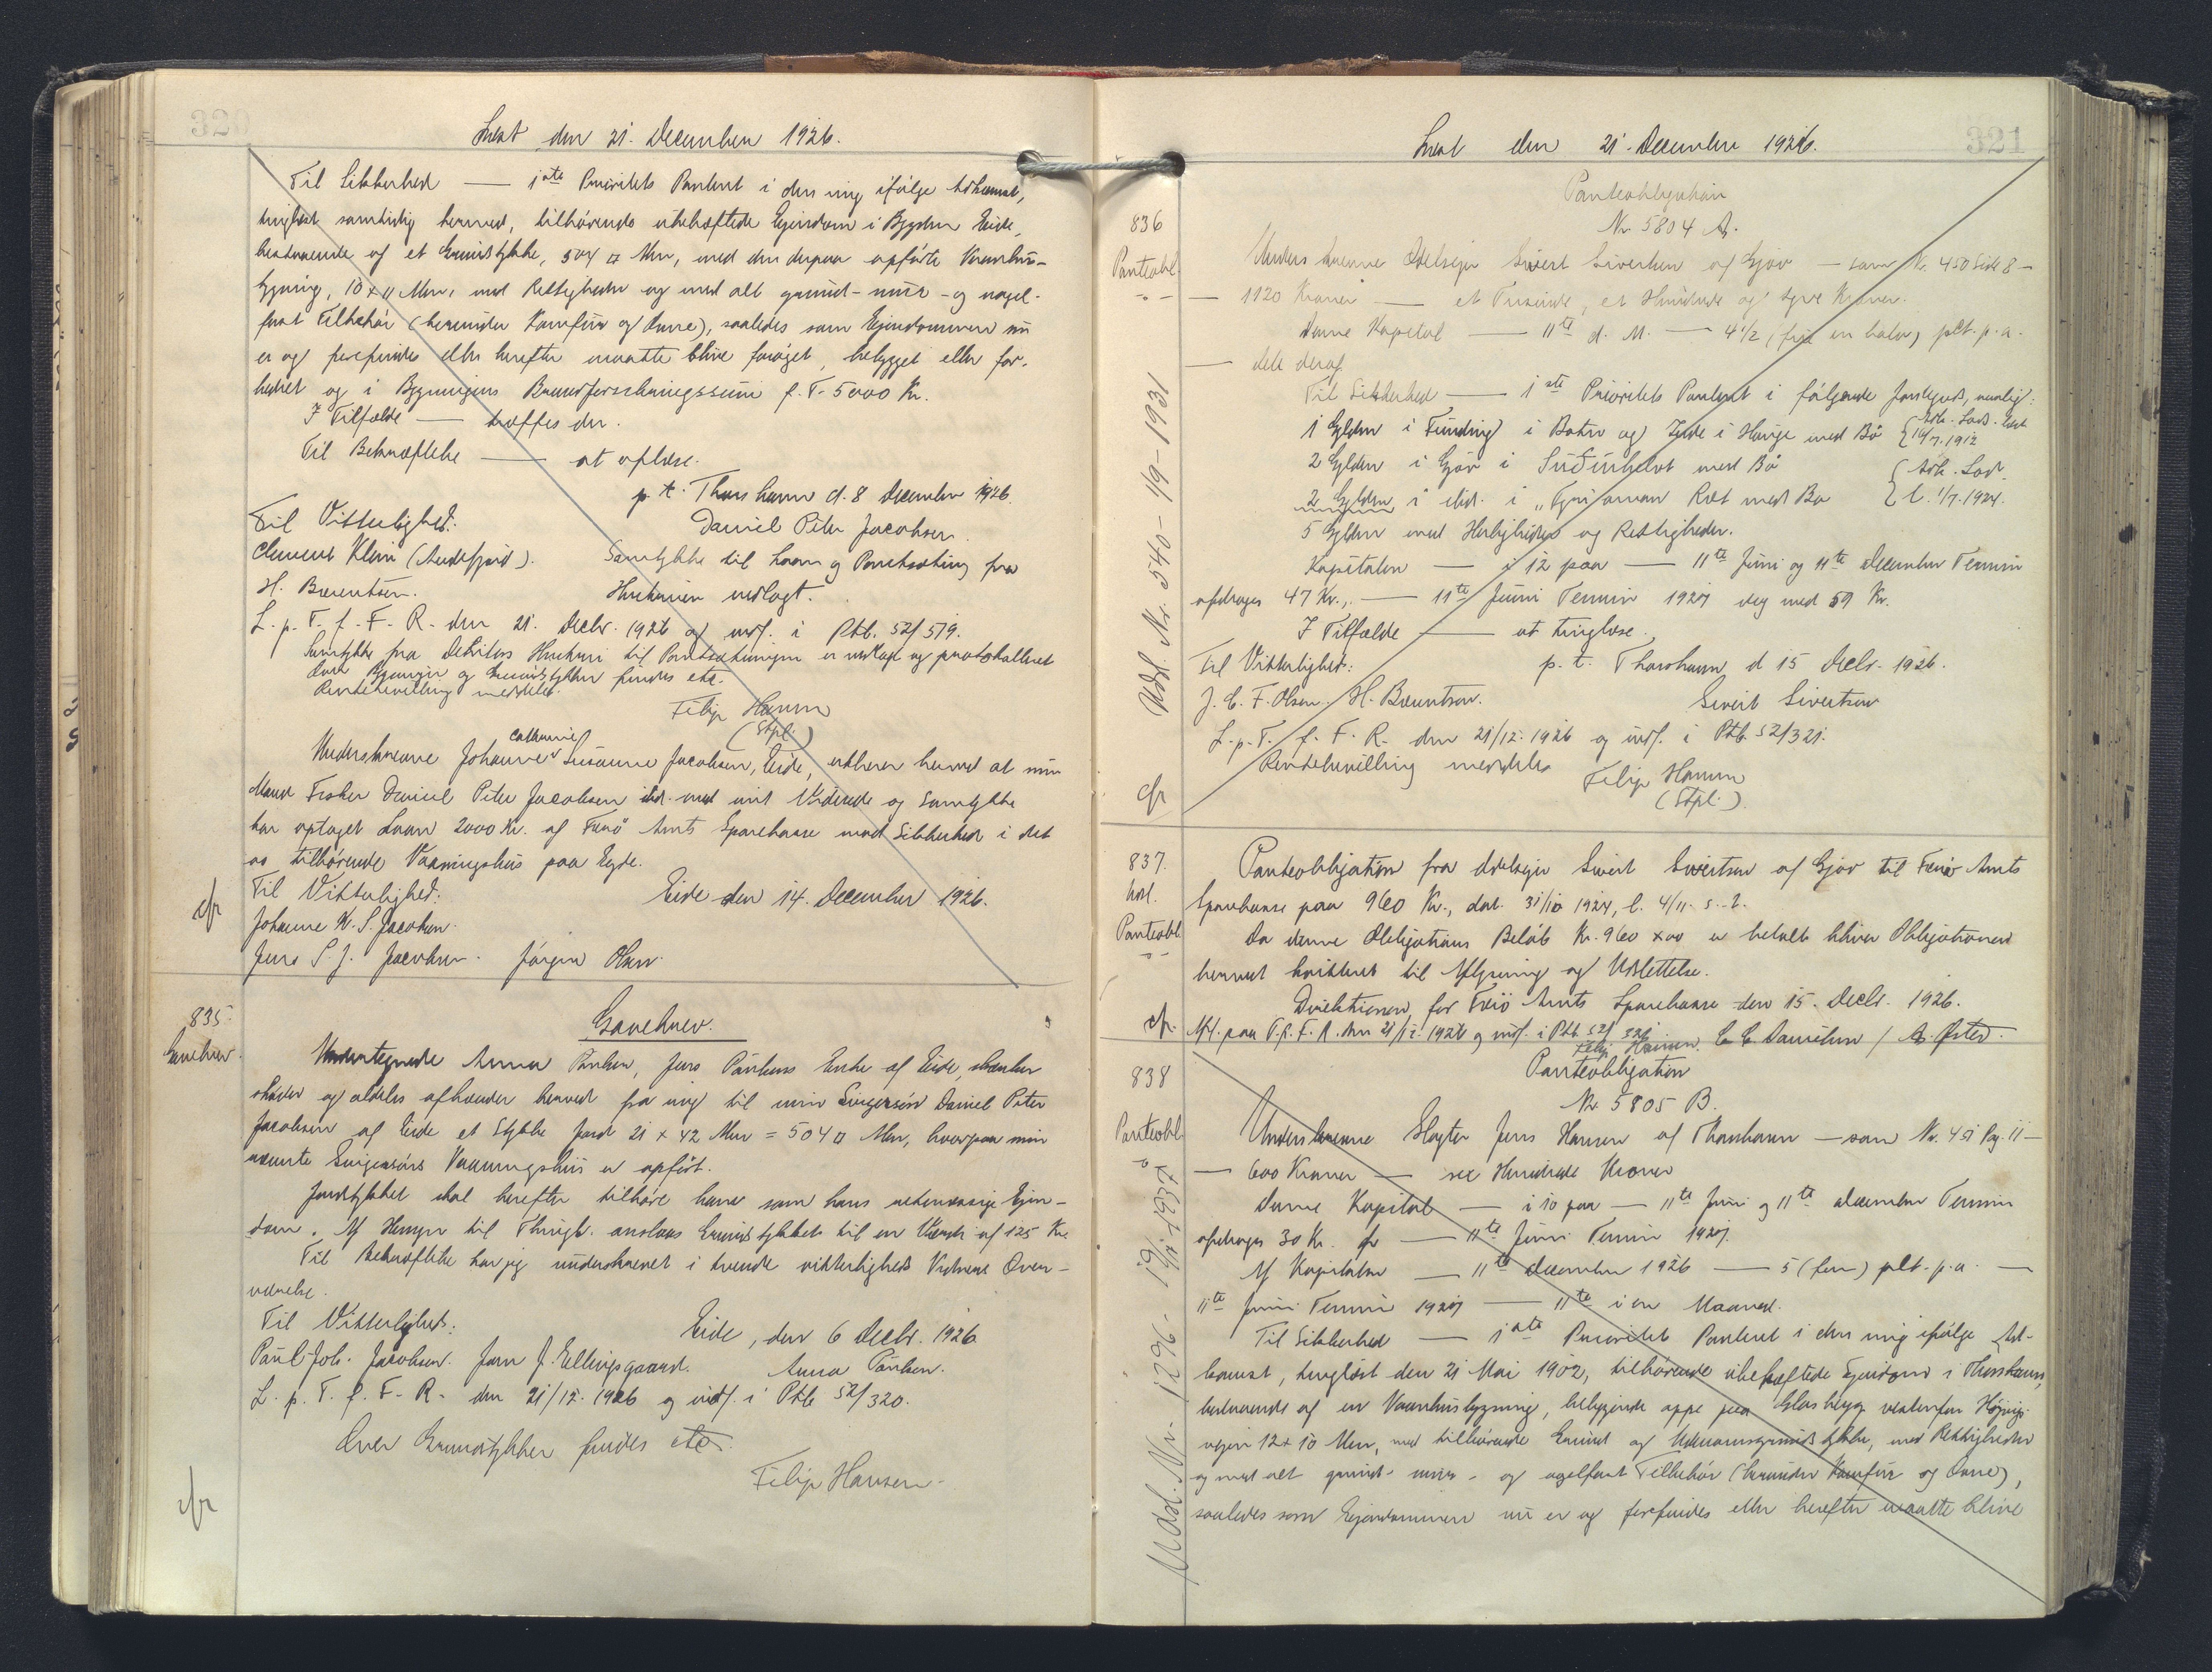 320
Læst den 21. December 1926.
Til Sikkerhed — 1ste Prioritets Panteret i den mig ifølge Adkomst,
tinglæst samtidig hermed, tilhørende ubehæftede Ejendom i Bygden Eide,
bestaaende af et Grundstykke, 504 □ Alen, med den derpaa opførte Vaanhus-
bygning, 10 x 11 Alen, med Rettigheder og med alt grund- mur- og nagel-
fast Tilbehør (herunder Komfur og Ovne), saaledes som Ejendommen nu
er og forefindes eller herefter maatte blive forøget, bebygget eller for-
bedret og i Bygningens Brandforsikringssum p. T. 5000 Kr.
I Tilfælde — træffes der.
Til Bekræftelse — at oplæse.
p. t. Thorshavn d. 8 December 1926.
Til Vitterlighed: Daniel Peter Jacobsen.
Clement Klein (Andefjord). Samtykke til Laan og Pantsætning fra
H. Berentsen. Hustruen vedlagt.
L. p. T. f. F. R. den 21. Decbr. 1926 og indf. i Ptb. 52/319.
Samtykke fra Debitors Hustru til Pantsætningen er vedlagt og protokolleret
Over Bygningen og Grundstykket findes etc.
Rentebevilling meddeles.
Filip Hansen
(Stpl.)
Cathrine
Underskrevne Johanne Susanne Jacobsen, Eide, erklærer herved at min
Mand Fisker Daniel Peter Jacobsen ibd. med mit Vidende og Samtykke
har optaget Laan 2000 Kr. af Færø Amts Sparekasse mod Sikkerhed i det
os tilhørende Vaaningshus paa Eyde.
Til Vitterlighed: Eide den 14. December 1926.
cfr
Johanne K. S. Jacobsen.
Jens S. J. Jacobsen. Jørgen Olsen.
835.
Gavebrev.
Gavebrev.
Undertegnede Anna Poulsen, Jens Poulsens Enke af Eide, skænker
skøder og aldeles afhænder herved fra mig til min Svigersøn Daniel Peter
Jacobsen af Eide et Stykke Jord 21 x 42 Alen = 504 □ Alen, hvorpaa min
nævnte Svigersøns Vaaningshus er opført.
Jordstykket skal herefter tilhøre ham som hans retmæssige Ejen-
dom. Af Hensyn til Thingl. anslaas Grundstykket til en Værdi af 125 Kr.
Til Bekræftelse har jeg underskrevet i tvende vitterligheds Vidners Over-
værelse.
Til Vitterlighed: Eide, den 6 Decbr. 1926
Poul Joh. Jacobsen. Jørn J. Ellingsgaard. Anna Poulsen.
L. p. T. f. F. R. den 21/12. 1926 og indf. i Ptb 52/320.
Over Grundstykket findes etc.
Filip Hansen.
cfr
321
Læst den 21. December 1926.
Panteobligation
Nr. 5804 A.
836
Panteobl.
Underskrevne Odelsejer Sivert Sivertsen af Gjov — som Nr. 450 Side 8 —
— 1120 Kroner — et Tusinde, et Hundrede og tyve Kroner.
Denne Kapital — 11te d. M. — 4 1/2 (fire en halv) pCt. p. a.
— dele deraf.
Til Sikkerhed — 1ste Prioritets Panteret i følgende Jordegods, nemlig:
1 Gylden i Funding i Botni og Inde i Hauge med Bø { Adk. Lod. læst 16/7. 1912
2 Gylden i Gjov i Suðurhelvt med Bø { Adk. Lod.
2 Gylden i ibid. i Ræt med Bø { l. 1/7. 1924.
5 Gylden med Herligheder og Rettigheder.
Kapitalen — i 12 paa — 11te Juni og 11te December Termin
afdrages 47 Kr., — 11te Juni Termin 1927 dog med 59 Kr.
I Tilfælde — at tinglæse.
Til Vitterlighed: p. t. Thorshavn d 15 Decbr. 1926.
J. C. F. Olsen. H. Berentsen. Sivert Sivertsen
L. p. T. f. F. R. den 21/12. 1926 og indf. i Ptb. 52/321.
Rentebevilling meddeles Filip Hansen
(Stpl.).
cfr
Udsl. Nr. 540 - 1/9 - 1931
837.
Panteobl.
Panteobligation fra Odelsejer Sivert Sivertsen af Gjov til Færø Amts
Sparekasse paa 960 Kr., dat. 31/10 1924, l. 4/11. s. A.
Da denne Obligations Beløb Kr. 960 x 00 er betalt bliver Obligationen
herved kvitteret til Aflysning og Udslettelse.
Direktionen for Færø Amts Sparekasse den 15. Decbr. 1926.
cfr. Afl. paa T. R. F. R. den 21/12. 1926 og indf. i Ptb. 52/321. C C Danielsen / A. Østed.
Filip Hansen.
838
Panteobl.
Panteobligation
Nr. 5805 B.
Underskrevne Slagter Jens Hansen af Thorshavn — som Nr. 451 Pag. 11 —
— 600 Kroner — sex Hundrede Kroner
Denne Kapital — i 10 paa — 11te Juni og 11te December Termin
afdrages 30 Kr. — 11te Juni Termin 1927.
Af Kapitalen — 11te December 1926 — 5 (fem) pCt. p. a. —
11te Juni Termin 1927 — 11te i en Maaned.
Til Sikkerhed — 1ste Prioritets Panteret i den mig ifølge Ad-
komst, tinglæst den 21 Mai 1902, tilhørende ubehæftede Ejendom i Thorshavn,
bestaaende af en Vaanhusbygning, beliggende oppe paa vestenfor Højvigs-
vejen 12 x 10 Alen, med tilhørende Grund og Udenomsgrundstykke, med Rettigheder
og med alt grund- mur- og nagelfast Tilbehør (herunder Komfur og Ovne),
saaledes som Ejendommen nu er og forefindes eller herefter maatte blive
Udsl. Nr. 1296 - 1937